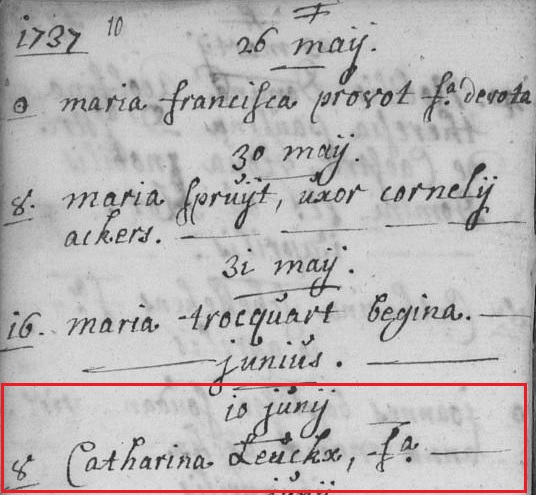 1737 10
26 maÿ.
0 maria francisca provot f.ª devota
30 maÿ.
8. maria spruÿt, uxor cornelÿ
ackers.
3i maÿ.
i6. maria trocquart begina.
junius.
i0 junÿ
8 Catharina Leuckx, f.ª
junÿ